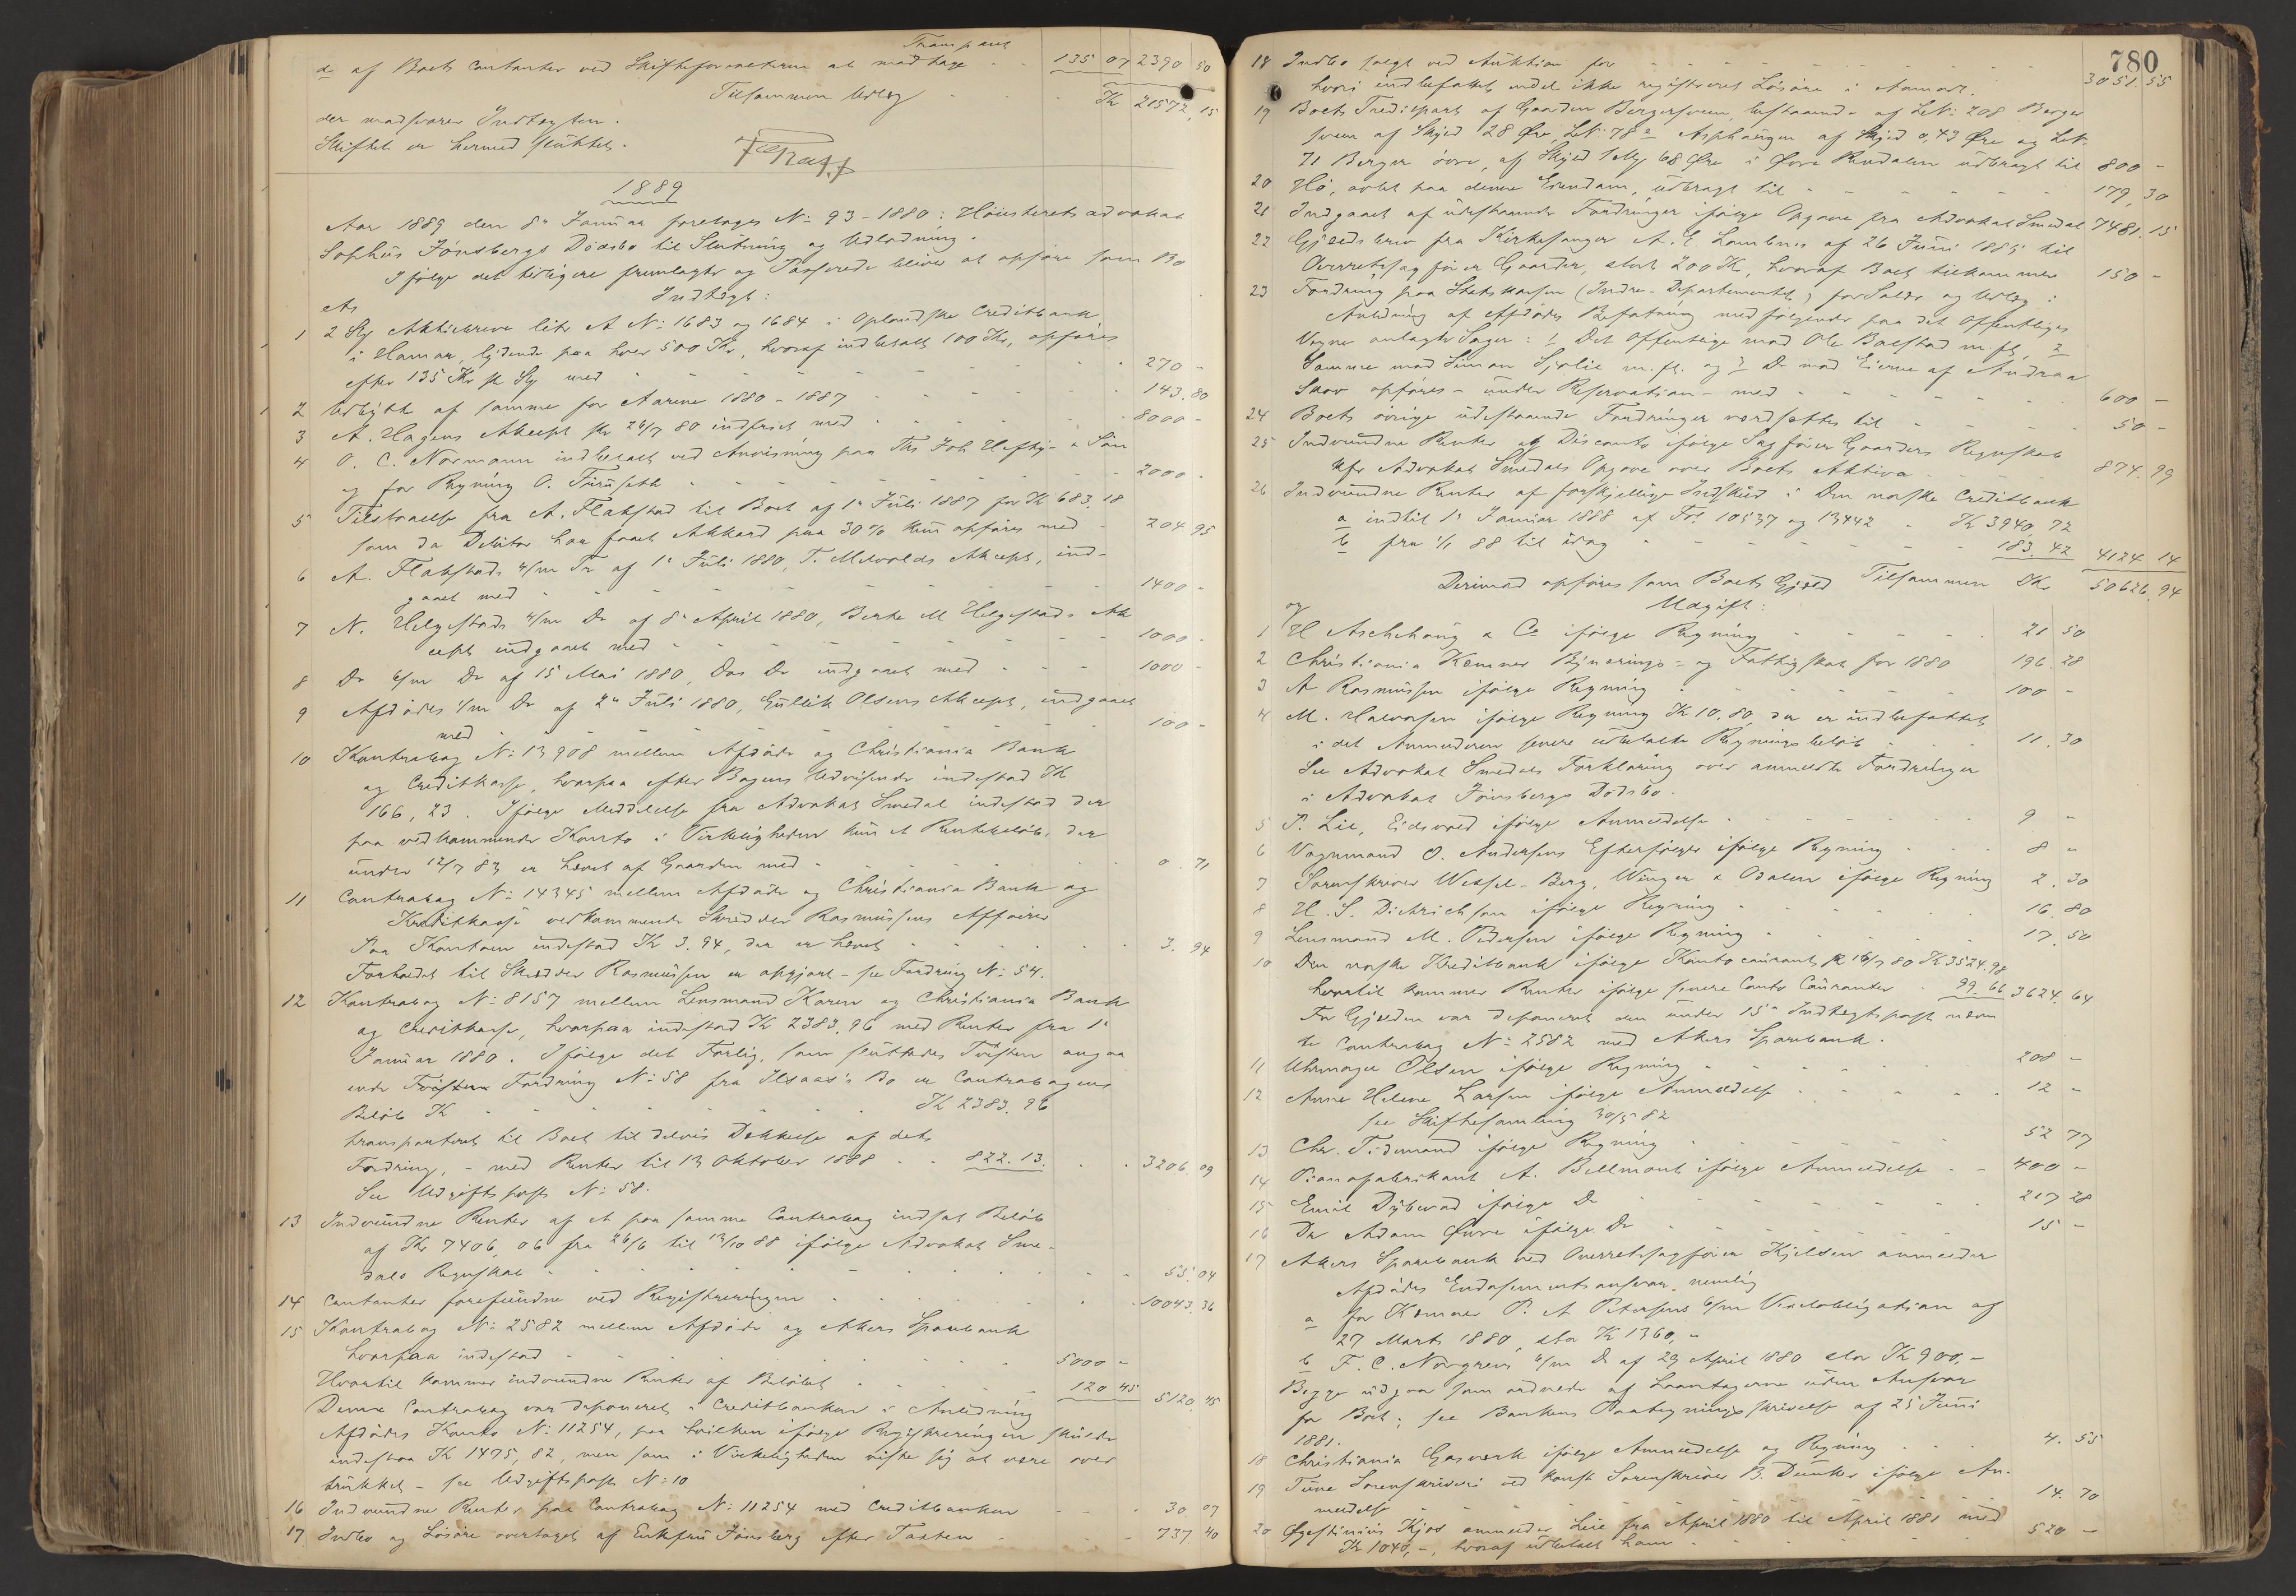 Transport
d. af Boets Contanter ved Skifteforvalteren at modtage 135 07 2390 50
Tilsammen Udlæg Kr 21572,15
der modsvarer Indtægten.
Skiftet er hermed sluttet.
1889
Aar 1889 den 8de Januar foretages No 93-1880: Høiesterets advokat
Sophus Jønsbergs Dødsbo til Slutning og Udlodning.
Ifølge det tidligere fremlagte og Passerede bliver at opføre som Bo
ets Indtægt:
1 2 Stk Aktiebreve litr A No 1683 og 1684 i Oplandske Creditbank
i Hamar, lydende paa hver 500 Kr, hvoraf indbetalt 100 Kr, opføres
efter 135 Kr pr Stk med 270 -
2 Udbytte af samme for Aarene 1880-1887 143.80
3 A. Hagens Akcept pr 26/7 80 indfriet med 8000 -
4 O. C. Normann indbetalt ved Anvisning paa Ths Joh Heftye & Søn
og for Regning O. Furuseth 2000 -
5 Tilstaaelse fra A. Flakstad til Boet af 1ste Juli 1887 for Kr 683.18
som da Debitor har faaet Akkord paa 30% kun opføres med 204.95
6 A. Flakstads 4/m Tr af 1ste Juli 1880, T. Melvolds Akcept, ind-
gaaet med 1400 -
7 N. Helgestads 4/m Do af 8de April 1880, Berthe M Helgestads Ak
cept indgaaet med 1000 -
8 Do 6/m Do af 15 Mai 1880, Dos Do indgaaet med 1000 -
9 Afdødes 4/m Do af 2den Juli 1880, Gullik Olsens Akcept, indgaaet
med 100 -
10 Kontrabog No 13908 mellem Afdøde og Christiania Bank
og Creditkasse, hvorpaa efter Bogens Udvisende indestod Kr
166,23. Ifølge Meddelelse fra Advokat Smedal indestod der
paa vedkommende Konto i Virkeligheden kun et Rentebeløb, der
under 12/7 83 er hævet af Gaarder med 0.71
11 Contrabog No 14345 mellem Afdøde og Christiania Bank og
Kreditkasse vedkommende Skrædder Rasmussens Affairer
Paa Kontoen indestod Kr 3.94, der er hævet 3.94
Forholdet til Skrædder Rasmussen er opgjort - se Fordring No 54.
12 Kontrabog No 8157 mellem Lensmand Karen og Christiania Bank
og Creditkasse, hvorpaa indestod Kr 2383,96 med Renter fra 1ste
Januar 1880. Ifølge det Forlig, som sluttedes Tvisten angaa
ende Fordring No 58 fra Ilsaas's Bo er Contrabogens
Beløb Kr Kr 2383.96
transporteret til Boet til delvis Dækkelse af dets
Fordring, - med Renter til 13 Oktober 1888 822.13. 3206.09
Se Udgiftspost No 58.
13 Indvundne Renter af et paa samme Contrabog indsat Beløb
af Kr 7406,06 fra 26/6 til 13/10 88 ifølge Advokat Sme-
dals Regnskab 55.04
14 Contanter forefundne ved Registreringen 10043.36
15 Kontrabog No 2582 mellem Afdøde og Akers Sparebank
hvorpaa indestod 5000 -
Hvortil kommer indvundne Renter af Beløbet 120 45 5120.45
Denne Contrabog var deponeret i Creditbanken i Anledning
Afdødes Konto No 11254, paa hvilken ifølge Registreringen skulde
indestaa Kr 1475,82, men som i Virkeligheden viste sig at være over
trukket - se Udgiftspost No 10
16 Indvundne Renter paa Contrabog No 11254 med Creditbanken 30.07
17 Indbo og Løsøre overtaget af Enkefru Jønsberg efter Taxten 737.40
780
18 Indbo solgt ved Auktion for 3051.55
hvori indbefattet endel ikke registreret Løsøre i Aamodt.
19 Boets Trediepart af Gaarden Bergersveen, bestaaende af LNo 208 Berger
sveen af Skyld 28 Øre LNo 78a Asphaugen af Skyld 0,43 Øre og LNo
71 Berger øvre, af Skyld 1 Mk 68 Øre i Øvre Rendalen udbragt til 800 -
20 Hø, avlet paa denne Eiendom, udbragt til 179,30
21 Indgaaet af udestaaende Fordringer ifølge Opgave fra Advokat Smedal 7481.15
22 Gjældsbrev fra Kirkesanger A. E. Lambnes af 26 Juni 1885 til
Overretssagfører Gaarder, stort 200 Kr, hvoraf Boet tilkommer 150 -
23 Fordring paa Statskassen (Indre-Departementet) for Salær og Udlæg i
Anledning af Afdødes Befatning med følgende paa det Offentliges
Vegne anlagte Sager: 1) Det Offentlige mod Ole Bolstad m. fl., 2)
Samme mod Simon Sjølie m. fl. og 3) Do mod Eierne af Andraa
Skov opføres - under Reservation - med 600 -
24 Boets øvrige udestaaende Fordringer værdsættes til 50 -
25 Indvundne Renter og Disconto ifølge Sagfører Gaarders Regnskab
kfr Advokat Smedals Opgave over Boets Aktiva 874.99
26 Indvundne Renter af forskjellige Indskud i Den norske Creditbank
a indtil 1ste Januar 1888 af Fol 10537 og 13442 Kr 3940,72
b fra 1/1 88 til idag 183.42 4124 14
Tilsammen Kr 50626.94
Derimod opføres som Boets Gjæld
og Udgift:
1 H Aschehoug & Co ifølge Regning 21 50
2 Christiania Kemner Bynærings- og Fattigskat for 1880 196.28
3 A Rasmussen ifølge Regning 100 -
4 M. Halvorsen ifølge Regning Kr 10.80, der er indbefattet
i det Anmelderen senere udbetalte Regningsbeløb 11.30
Se Advokat Smedals Forklaring over anmeldte Fordringer
i Advokat Jønsbergs Dødsbo.
5 P. Lie, Eidsvold ifølge Anmeldelse 9 -
6 Vognmand O. Andersens Efterfølger ifølge Regning 8 -
7 Sorenskriver Wessel-Berg, Winger & Odalen ifølge Regning 2.30
8 H. S. Dietrichson ifølge Regning 16.80
9 Lensmand M. Pedersen ifølge Regning 17.50
10 Den norske Kreditbank ifølge Konto courant pr 16/7 80 Kr 3524.98
hvortil kommer Renter ifølge senere Conto Couranter 99.66 3624.64
For Gjælden var deponeret den under 15de Indtægtspost nævn
te Contrabog No 2582 med Akers Sparebank.
11 Uhrmager Olsen ifølge Regning 208 -
12 Anne Helene Larsen ifølge Anmeldelse 12 -
se Skiftesamling 30/5 82
13 Chr. Tidemand ifølge Regning 52 77
14 Pianofabrikant A. Bellmont ifølge Anmeldelse 400 -
15 Emil Dybwad ifølge Do 217 28
16 Dr Adam Owre ifølge Do 15 -
17 Akers Sparebank ved Overretssagfører Kjelsen anmelder
Afdødes Endossementsansvar, nemlig
a for Kæmner P. A Petersens 6/m Vexelobligation af
27 Marts 1880, stor Kr 1360,-
b F. C. Norgrens 6/m Do af 29 April 1880 stor Kr 900,-
Begge udgaar som ordnede af Laantagerne uden Ansvar
for Boet; se Bankens Paategningsskrivelse af 25 Juni
1881.
18 Christiania Gasværk ifølge Anmeldelse og Regning 4.55
19 Tune Sorenskriveri ved konst Sorenskriver B. Dunker ifølge An-
meldelse 14.70
20 Kjos anmelder Leie fra April 1880 til April 1881 med
Kr 1040,-, hvoraf udbetalt ham 520 -